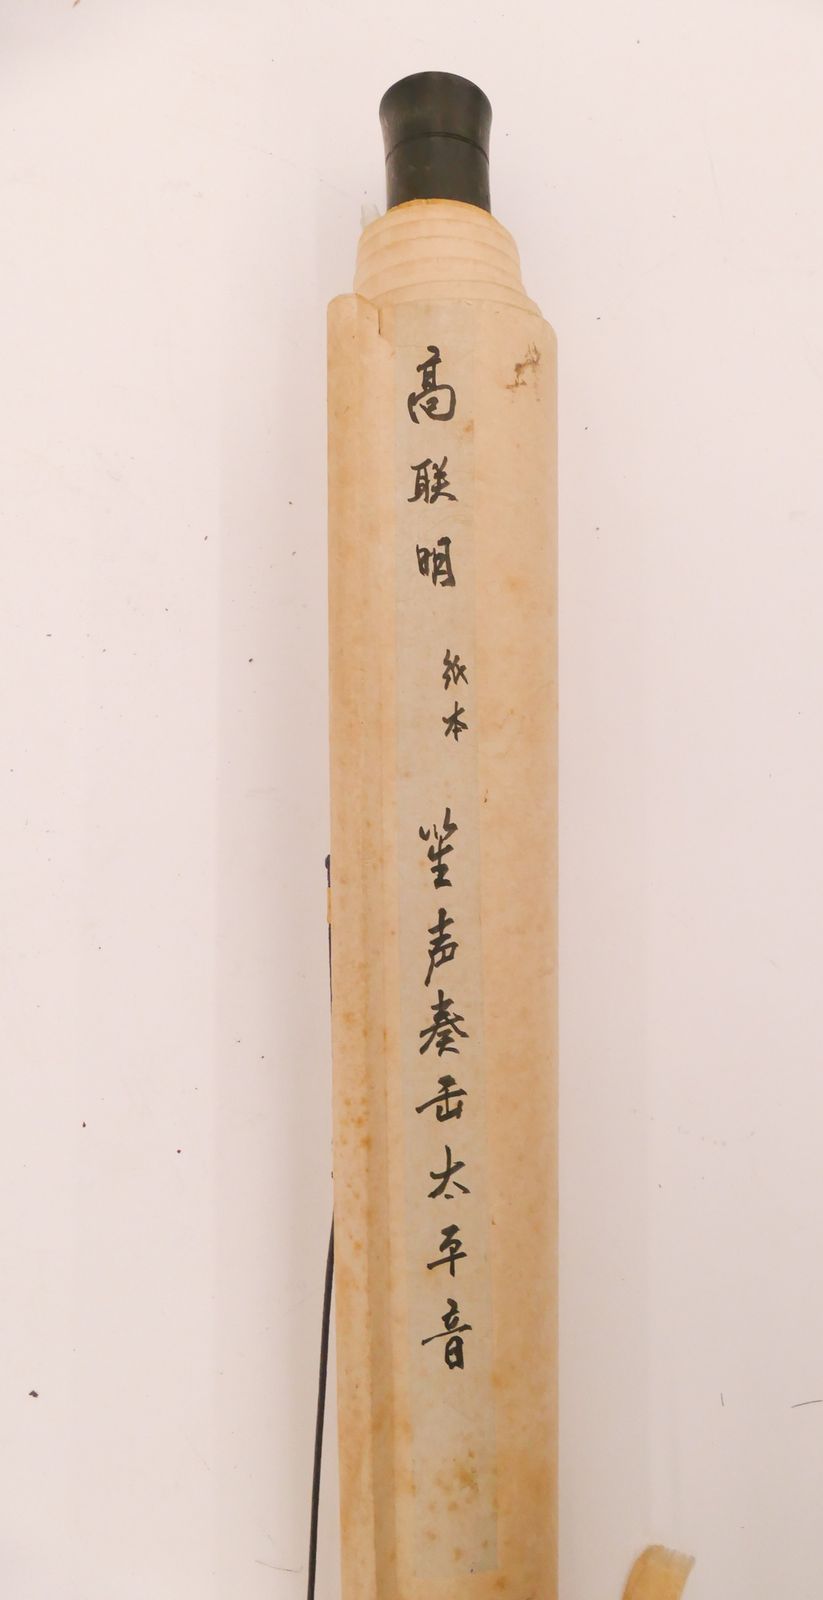 高联明 纸本 笙声奏缶太平音